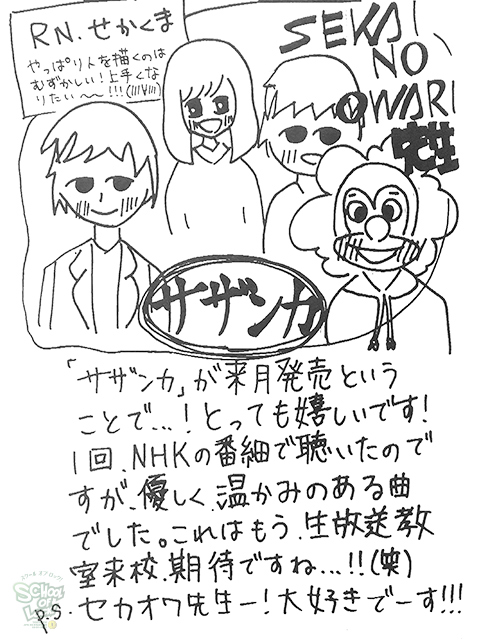 RN.せかくま
やっぱり人を描くのは
むずかしい!上手くな
りたい〜〜!!!(///∀///)
SEKAI
NO
OWARI
先生
サザンカ
「サザンカ」が来月発売という
ことで…!とっても嬉しいです!
1回、NHKの番細で聴いたので
すが、優しく、温かみのある曲
でした。これはもう、生放送教
室来校、期待ですね…!!(笑)
P.S.セカオワ先生ー!大好きでーす!!!
SCHOOL
OF LOCK!